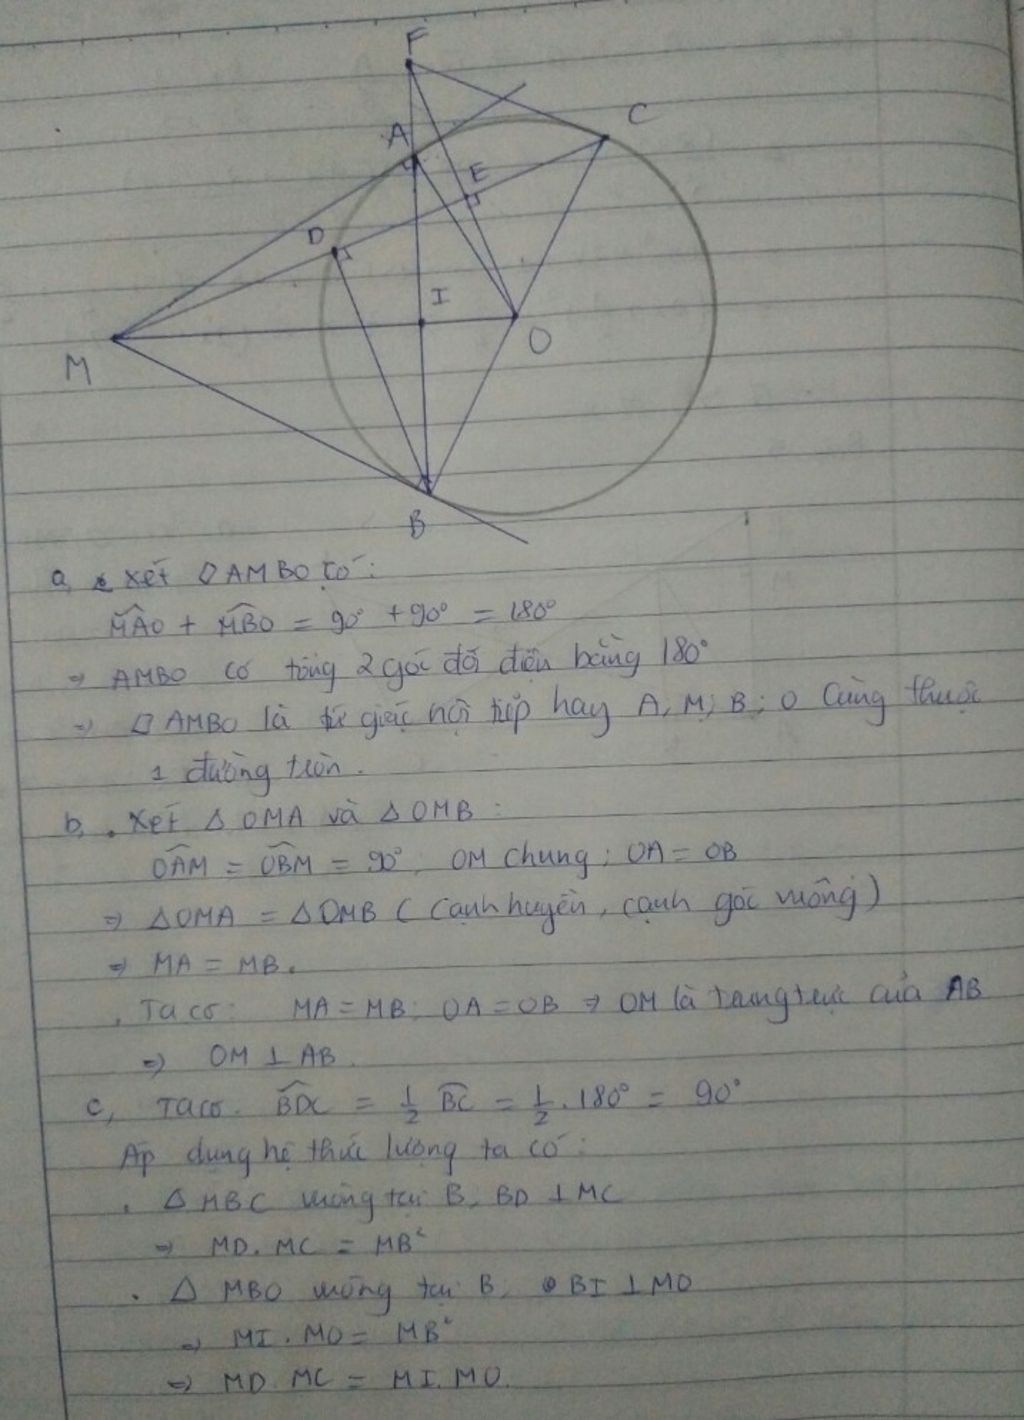 F
A
C
E
D
I
M
O
B
a, Xét ▱AMBO có:
M̂AO + M̂BO = 90° + 90° = 180°
⇒ AMBO có tổng 2 góc đối diện bằng 180°
⇒ ▱AMBO là tứ giác nội tiếp hay A, M; B; O Cùng thuộc
1 đường tròn.
b, . Xét △OMA và △OMB:
ÔAM = ÔBM = 90°; OM chung; OA = OB
⇒ △OMA = △OMB (Cạnh huyền, cạnh góc vuông)
⇒ MA = MB.
. Ta có: MA = MB; OA = OB ⇒ OM là trung trực của AB
⇒ OM ⊥ AB.
c, Ta có. B̂DC = 1/2 B͡C = 1/2 . 180° = 90°
Áp dụng hệ thức lượng ta có:
. △MBC vuông tại B, BD ⊥ MC
⇒ MD. MC = MB²
. △ MBO vuông tại B, BI ⊥ MO
⇒ MI. MO = MB²
⇒ MD. MC = MI. MO.